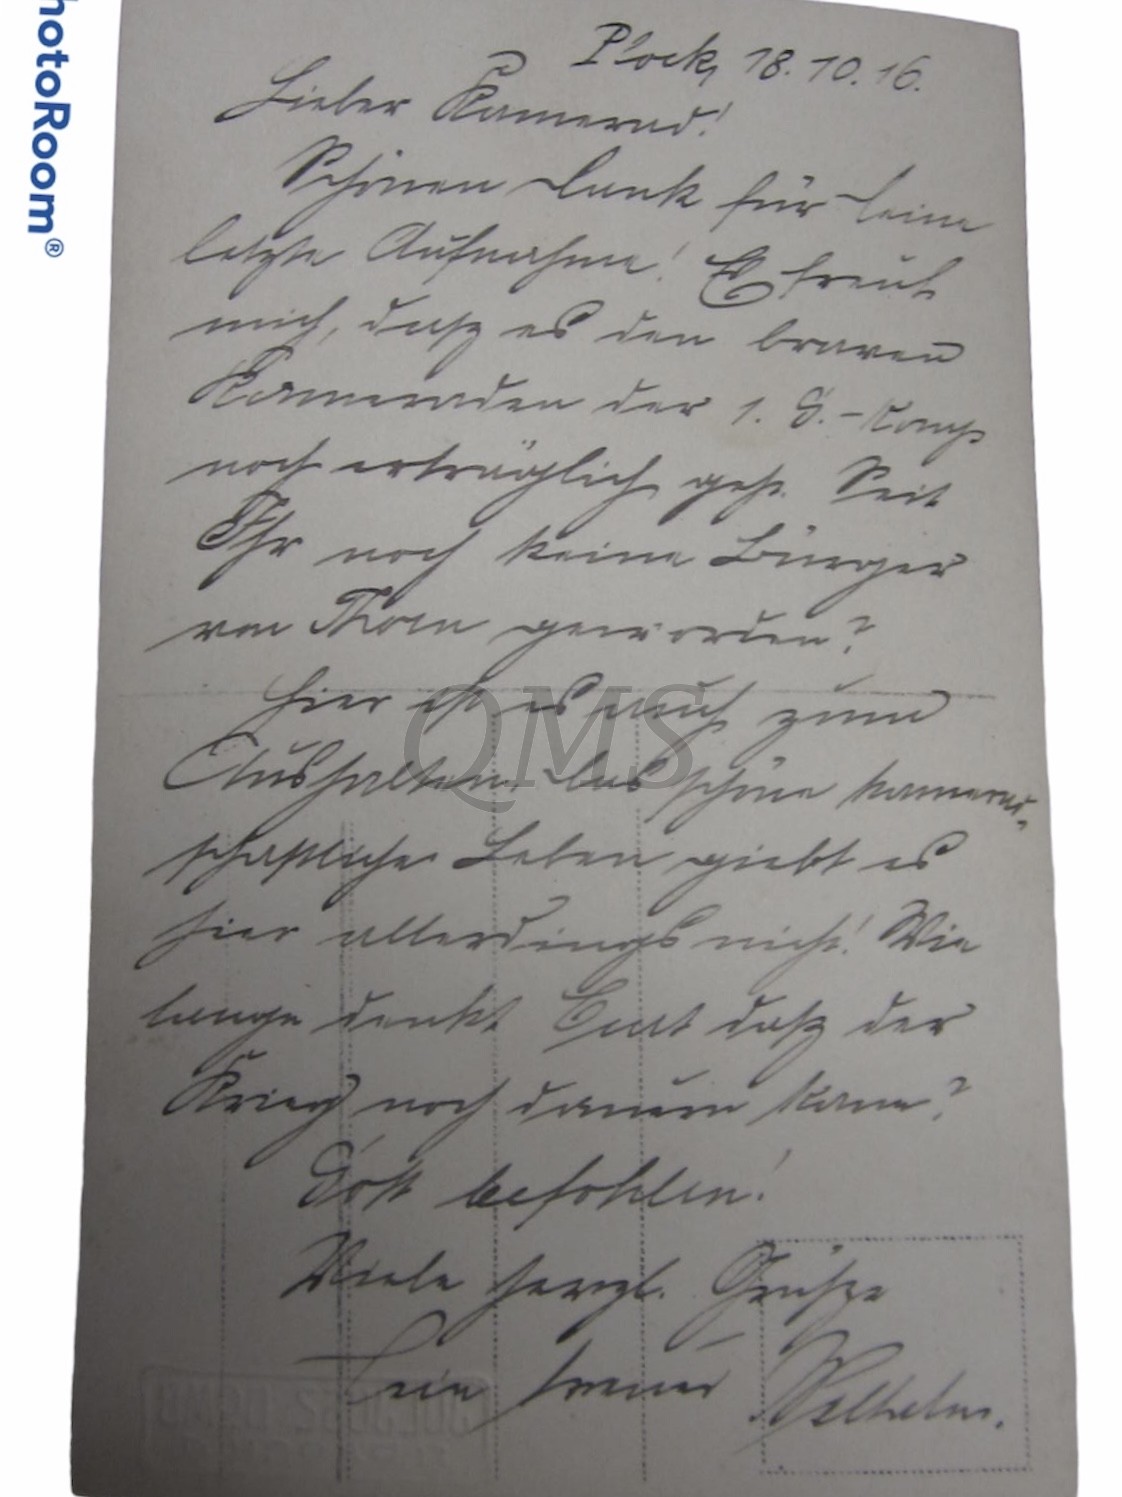 Plock, 18.10.16.
Lieber Kamerad!
Schönen Dank für Deine
letzte Aufnahme! Es freut
mich, daß es den braven
Kameraden der 1. E.-Komp
noch erträglich geht. Seit
Ihr noch keine Bürger
von Thorn geworden?
Hier ist es auch zum
Aushalten. Das schöne kamerad-
schaftliche Leben giebt es
hier allerdings nicht! Wie
lange denkt Curt daß der
Krieg noch dauern kann?
Gott befohlen!
Viele herzl. Grüße
Dein treuer Wilhelm.
QMS
hotoRoom®